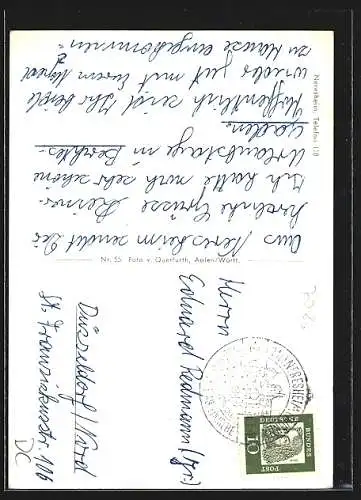 Aus Neresheim sendet Dir
herzliche Grüsse Reinos.
Ich hatte noch sehr schöne
Urlaubstage in Berchtes-
gaden.
Hoffentlich seid Ihr beide
wieder gut mit Eurem Moped
zu Hause angekommen.
Neresheim, Telefon 170
Nr. 55 Foto v. Querfurth, Aalen/Württ.
Herrn
Eduard Redmann (Jr.)
Düsseldorf / Nord
St. Franziskusstr. 116
DC
NERESHEIM
DEUTSCHE
BUNDESPOST
10